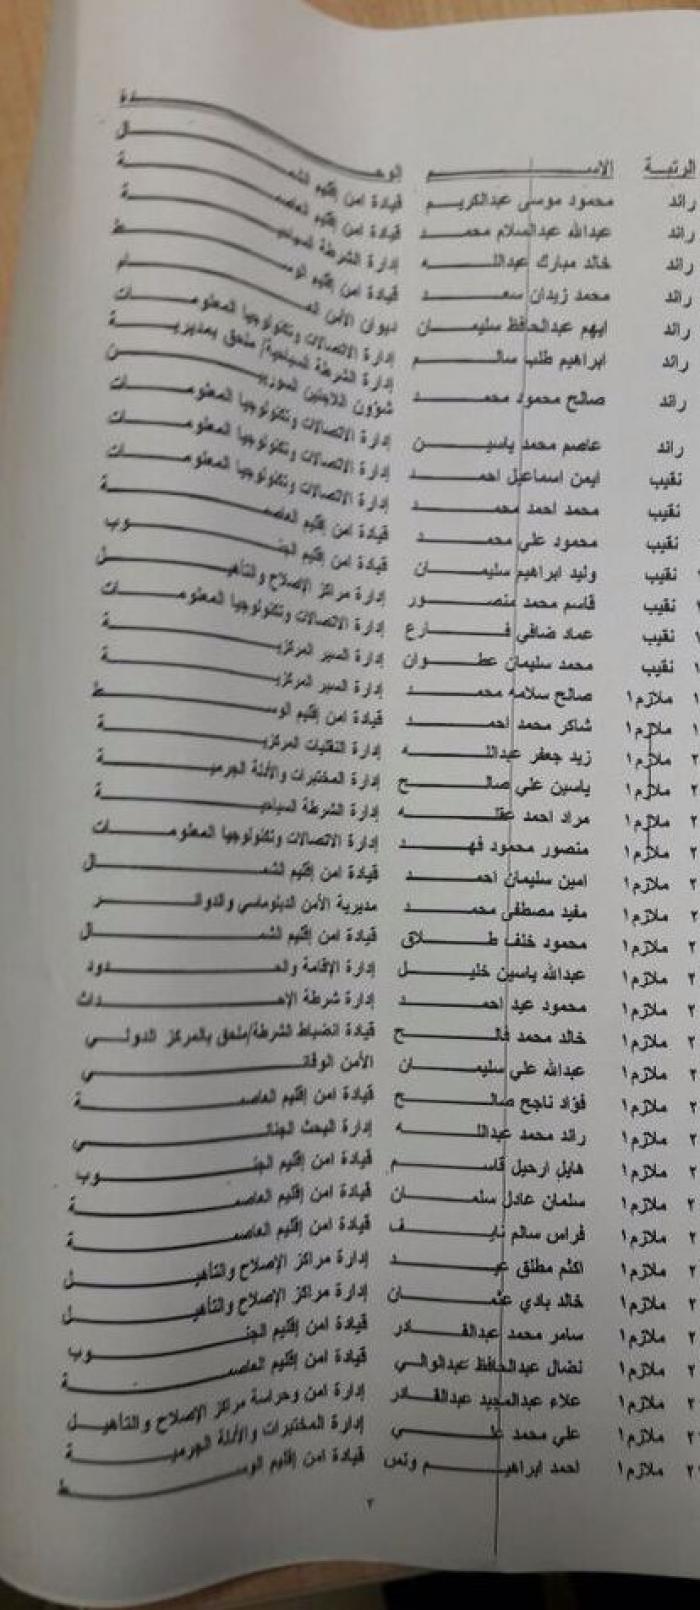 الرتبة الاسم الوحدة
رائد محمود موسى عبدالكريم قيادة امن إقليم الشمال
رائد عبدالله عبدالسلام محمد قيادة امن إقليم العاصمة
رائد خالد مبارك عبدالله إدارة الشرطة السياحية
رائد محمد زيدان سعد قيادة امن إقليم الوسط
رائد ايهم عبدالحافظ سليمان ديوان الأمن العام
رائد ابراهيم طلب سالم إدارة الاتصالات وتكنولوجيا المعلومات
رائد صالح محمود محمد إدارة الشرطة السياحية/ ملحق بمديرية
شؤون اللاجئين السوريين
رائد عاصم محمد ياسين إدارة الاتصالات وتكنولوجيا المعلومات
نقيب ايمن اسماعيل احمد إدارة الاتصالات وتكنولوجيا المعلومات
نقيب محمد احمد محمد إدارة الاتصالات وتكنولوجيا المعلومات
نقيب محمود علي محمد قيادة امن إقليم العاصمة
١ نقيب وليد ابراهيم سليمان قيادة امن إقليم الجنوب
١ نقيب قاسم محمد منصور إدارة مراكز الإصلاح والتأهيل
١ نقيب عماد ضافي فارع إدارة الاتصالات وتكنولوجيا المعلومات
١ نقيب محمد سليمان عطوان إدارة السير المركزية
١ ملازم١ صالح سلامه محمد إدارة السير المركزية
١ ملازم١ شاكر محمد احمد قيادة امن إقليم الوسط
٢ ملازم١ زيد جعفر عبدالله إدارة النقليات المركزية
٢ ملازم١ ياسين علي صالح إدارة المختبرات والأدلة الجرمية
٢ ملازم١ مراد احمد عقله إدارة الشرطة السياحية
٢ ملازم١ منصور محمود فهد إدارة الاتصالات وتكنولوجيا المعلومات
٢ ملازم١ امين سليمان احمد قيادة امن إقليم الشمال
٢ ملازم١ مفيد مصطفى محمد مديرية الأمن الدبلوماسي والدوائر
٢ ملازم١ محمود خلف طلاق قيادة امن إقليم الشمال
٢ ملازم١ عبدالله ياسين خليل إدارة الإقامة والحدود
٢ ملازم١ محمود عيد احمد إدارة شرطة الإحداث
٢ ملازم١ خالد محمد فالح قيادة انضباط الشرطة/ملحق بالمركز الدولي
٢ ملازم١ عبدالله علي سليمان الأمن الوقائي
٢ ملازم١ فؤاد ناجح صالح قيادة امن إقليم العاصمة
٢ ملازم١ رائد محمد عبدالله إدارة البحث الجنائي
٢ ملازم١ هايل ارحيل قاسم قيادة امن إقليم الجنوب
٢ ملازم١ سلمان عادل سلمان قيادة امن إقليم العاصمة
٢ ملازم١ فراس سالم نايف قيادة امن إقليم العاصمة
٢ ملازم١ اكثم مطلق عيد إدارة مراكز الإصلاح والتأهيل
٢ ملازم١ خالد بادي عثمان إدارة مراكز الإصلاح والتأهيل
٢ ملازم١ سامر محمد عبدالقادر قيادة امن إقليم الجنوب
٢ ملازم١ نضال عبدالحافظ عبدالوالي قيادة امن إقليم العاصمة
٢ ملازم١ علاء عبدالمجيد عبدالقادر إدارة امن وحراسة مراكز الإصلاح والتأهيل
ملازم١ علي محمد علي إدارة المختبرات والأدلة الجرمية
ملازم١ احمد ابراهيم ونس قيادة امن إقليم الوسط
٢